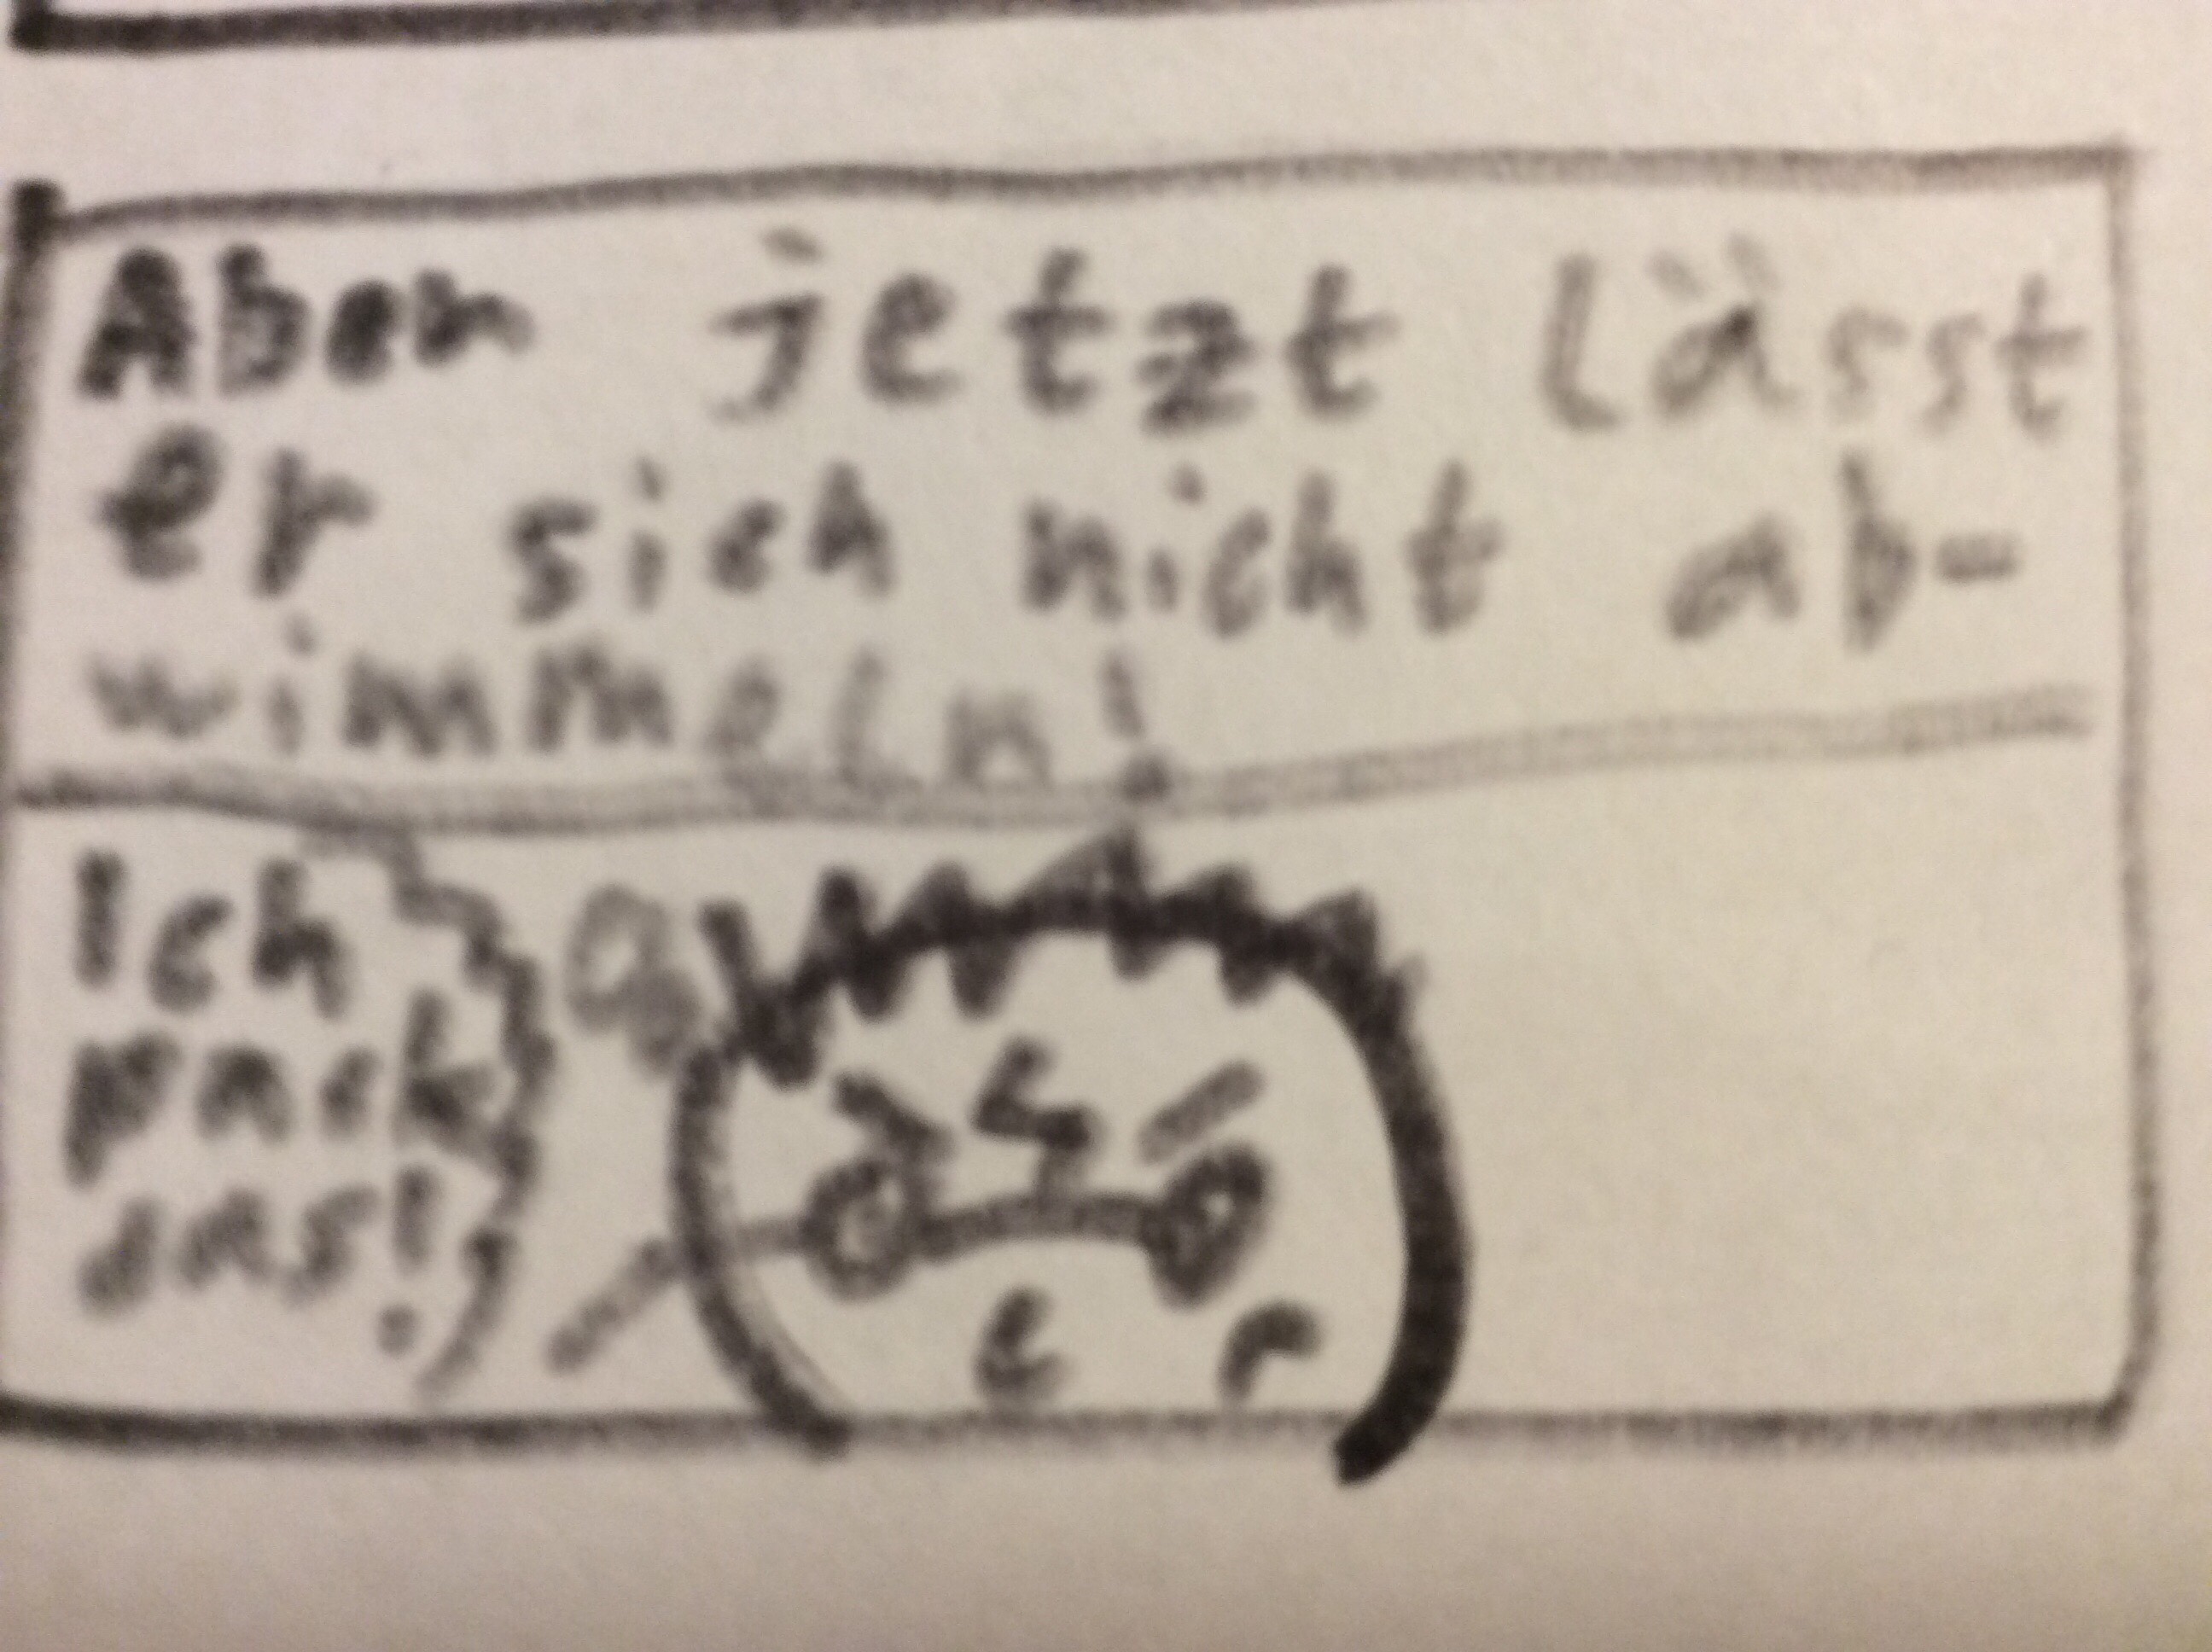 Aber jetzt lässt
er sich nicht ab-
wimmeln!
Ich
pack
das!